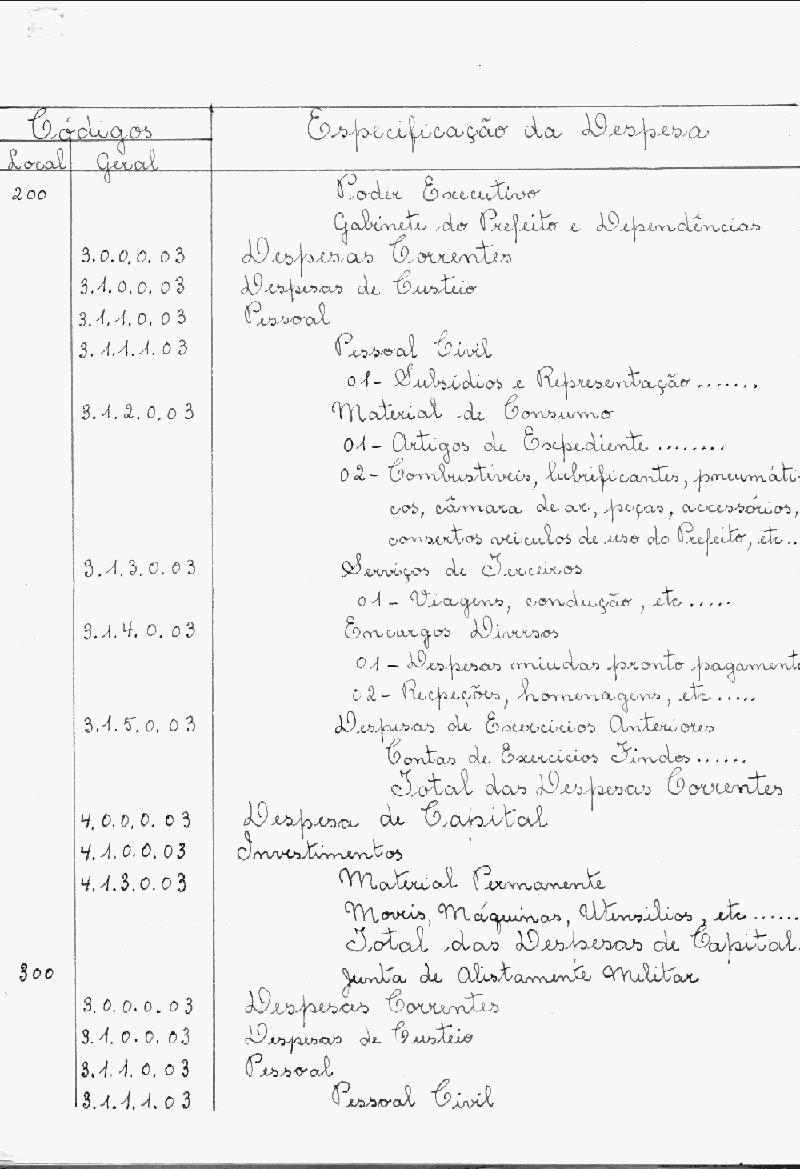 Códigos Especificação da Despesa
Local Geral
200 Poder Executivo
Gabinete do Prefeito e Dependências
3.0.0.0.03 Despesas Correntes
3.1.0.0.03 Despesas de Custeio
3.1.1.0.03 Pessoal
3.1.1.1.03 Pessoal Civil
01- Subsídios e Representação.......
3.1.2.0.03 Material de Consumo
01- Artigos de Expediente........
02- Combustíveis, lubrificantes, pneumáti-
cos, câmara de ar, peças, accessórios,
consertos veiculos de uso do Prefeito, etc...
3.1.3.0.03 Serviços de Terceiros
01- Viagens, condução, etc.....
3.1.4.0.03 Encargos Diversos
01- Despesas miudas pronto pagamento
02- Recpeções, homenagens, etc.....
3.1.5.0.03 Despesas de Exercicios Anteriores
Contas de Exercicios Findos......
Total das Despesas Correntes
4.0.0.0.03 Despesa de Capital
4.1.0.0.03 Investimentos
4.1.3.0.03 Material Permanente
Moveis, Máquinas, Utensilios, etc......
Total das Despesas de Capital.
300 Junta de Alistamente Militar
3.0.0.0.03 Despesas Correntes
3.1.0.0.03 Despesas de Custeio
3.1.1.0.03 Pessoal
3.1.1.1.03 Pessoal Civil